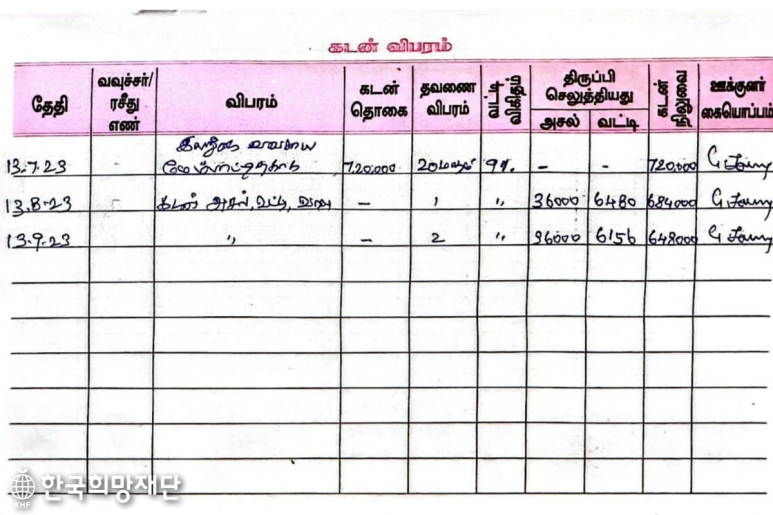 கடன் விபரம்
தேதி
வவுச்சர்/
ரசீது
எண்
விபரம்
கடன்
தொகை
தவணை
விபரம்
வட்டி
விகிதம்
திருப்பி
செலுத்தியது
அசல்
வட்டி
கடன்
நிலுவை
ஊக்குனர்
கையொப்பம்
13.7.23 7,20,000 20 9%. - - 720,000
13.8-23 கடன் அசல், வட்டி, வரவு - 1 " 36000 6480 684000
13.9.23 " - 2 " 36000 6156 648000
한국희망재단
KHF